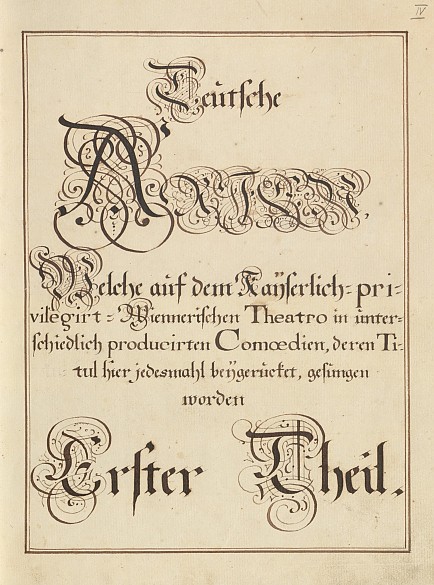 IV
Teutsche
ARIEN,
Welche auf dem Kaÿserlich-pri-
vilegirt-Wiennerischen Theatro in unter-
schiedlich producirten Comœdien, deren Ti-
tul hier jedesmahl beÿgerucket, gesungen
worden
Erster Theil.